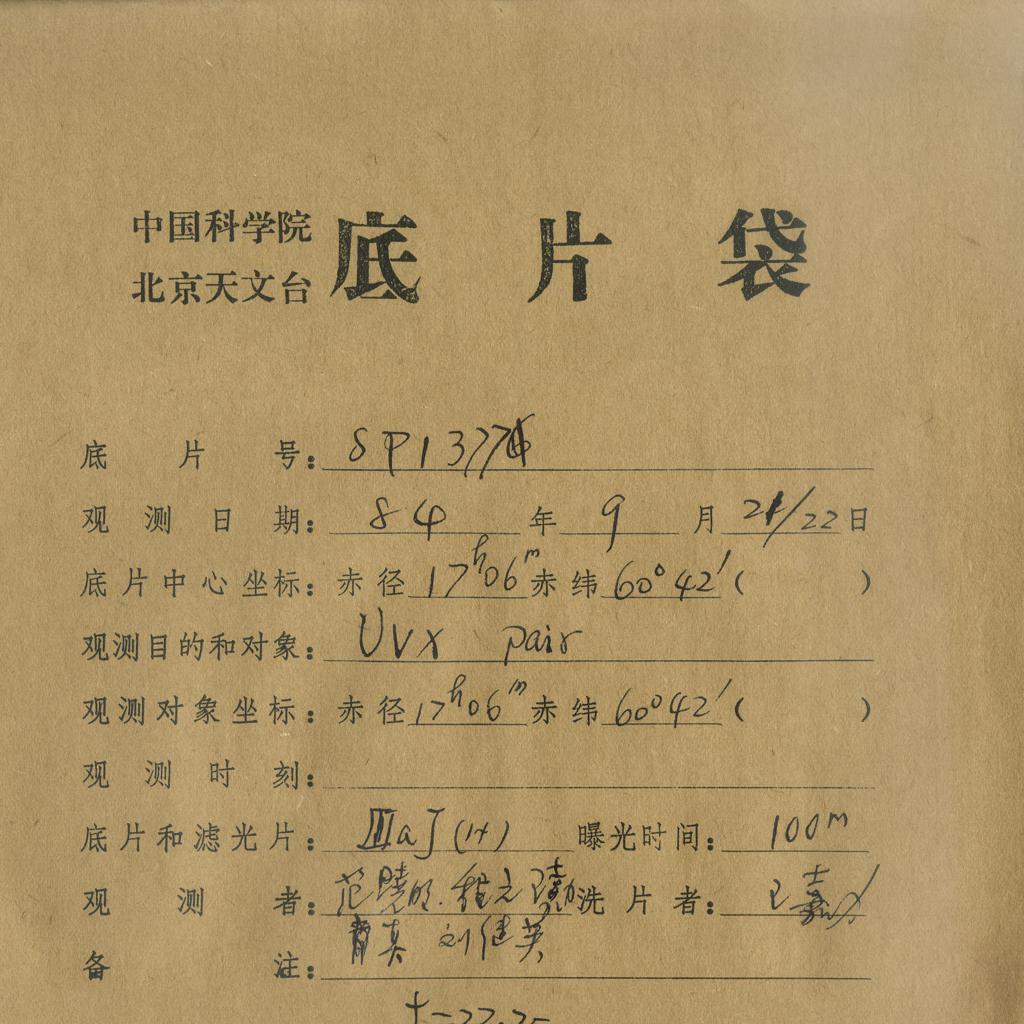 中国科学院
北京天文台
底片袋
底片号: SP1377
观测日期: 84年9月21/22日
底片中心坐标: 赤径17h06m赤纬60°42′( )
观测目的和对象: UVX pair
观测对象坐标: 赤径17h06m赤纬60°42′( )
观测时刻:
底片和滤光片: ⅢaJ(H) 曝光时间: 100m
观测者: 范 明. 程 洗片者: 王
刘继英
备注: